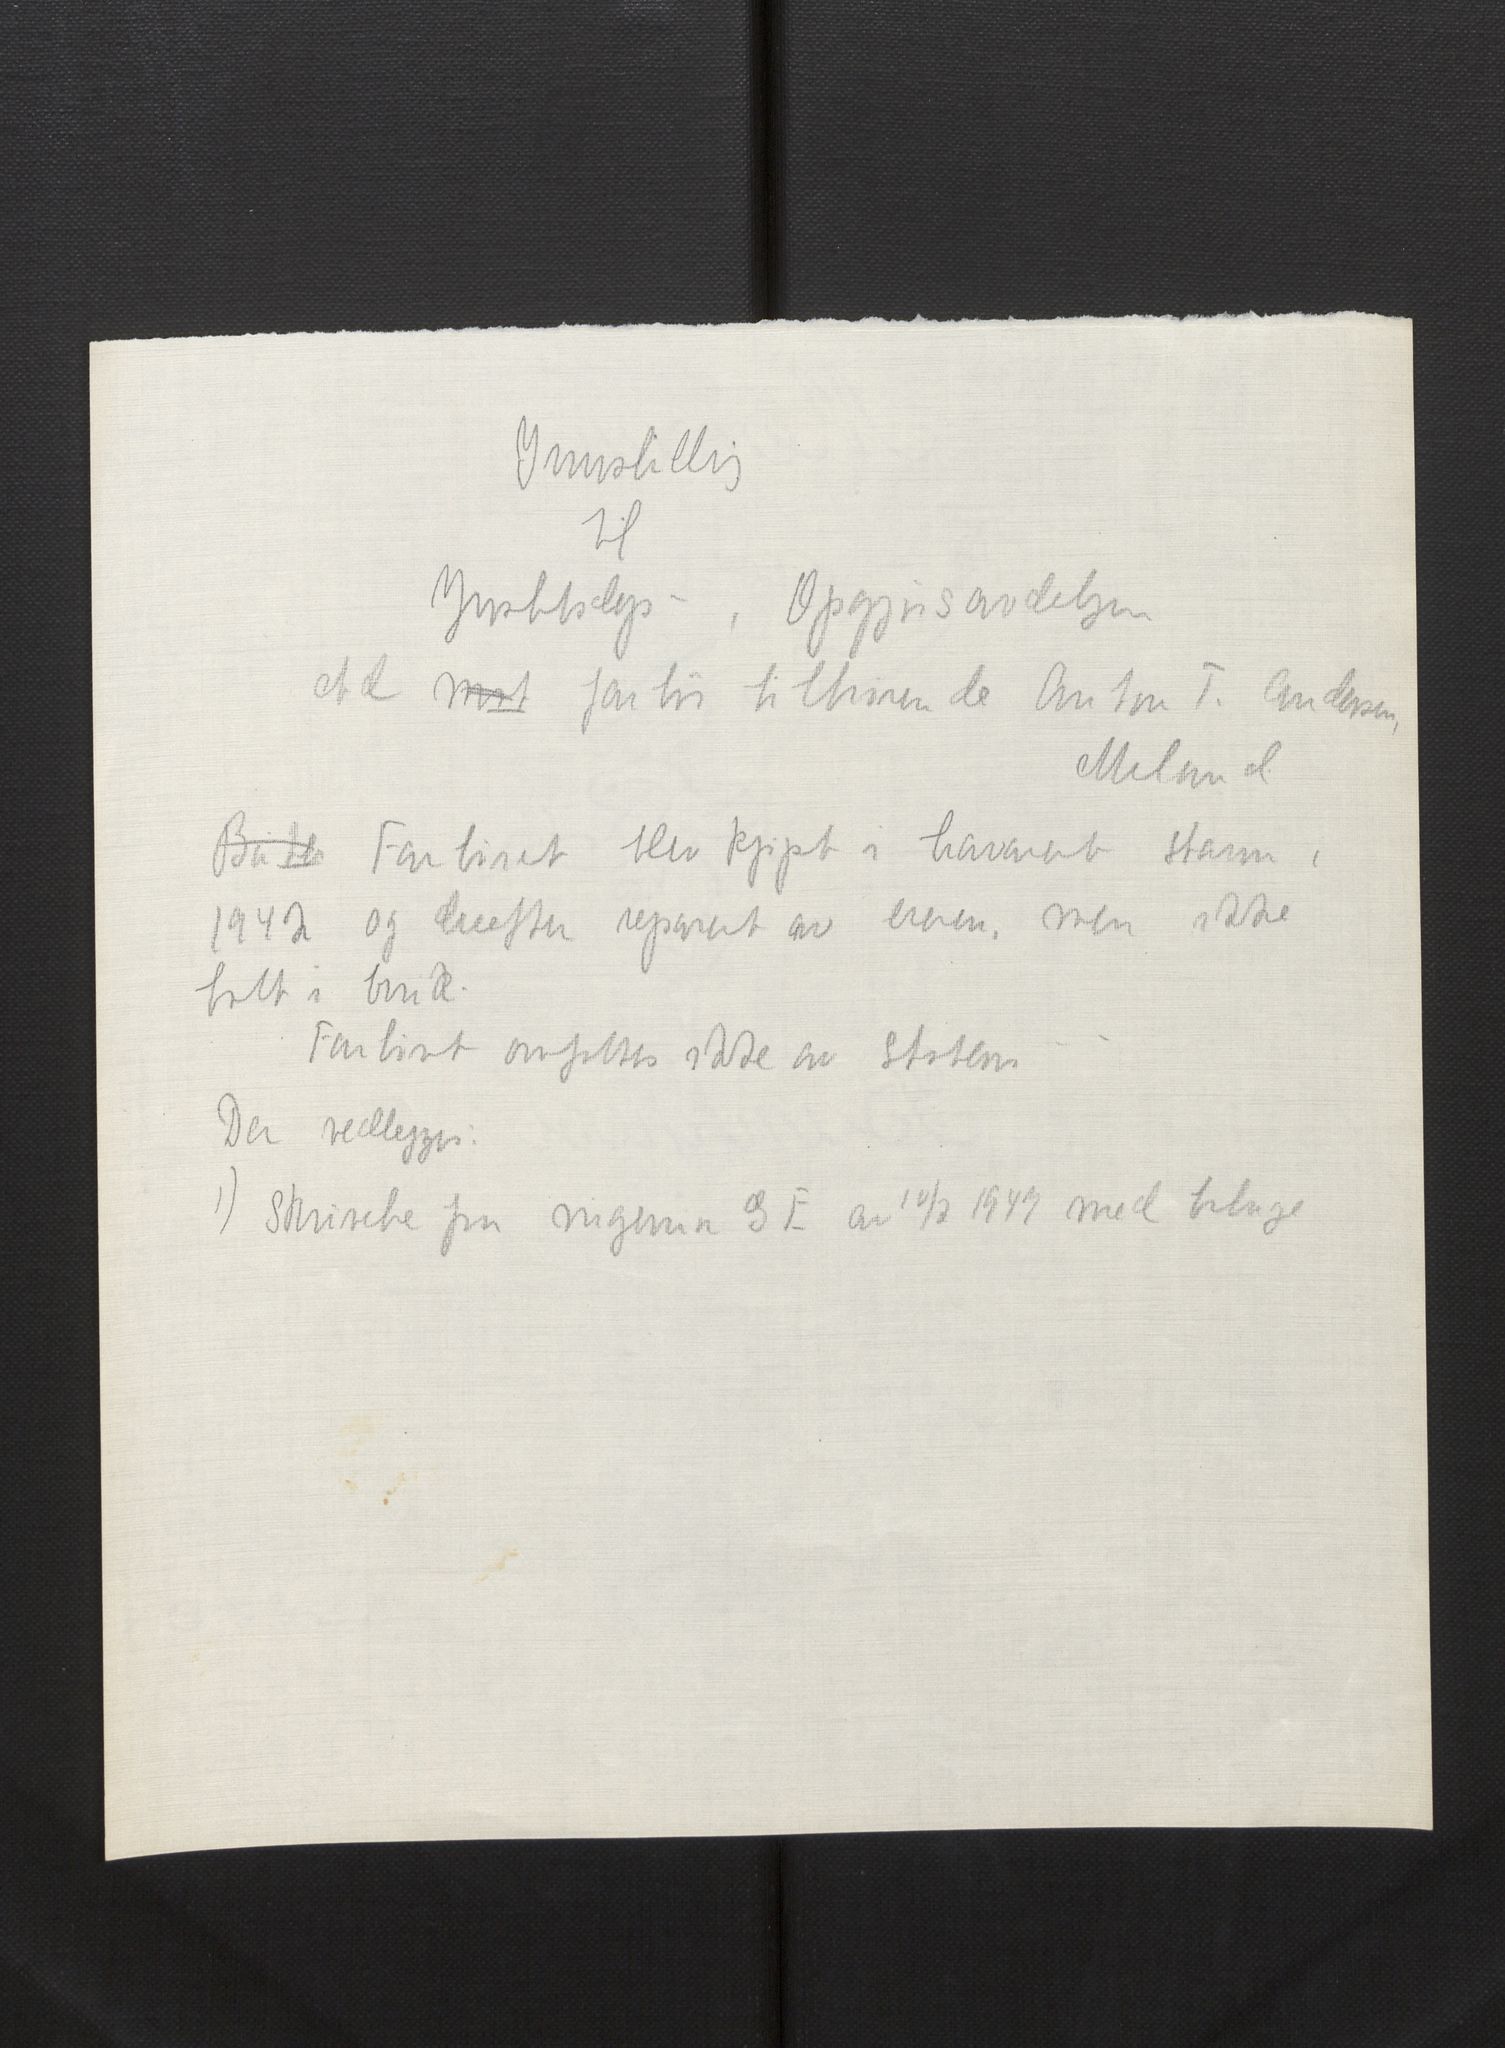 Innstilling
til
Justisdep-, Opgjørsavdelingen
Ad m/rt fartøi tilhørende Anton T. Andersen,
Meland
Båten Fartøiet blev kjøpt i havarert stann i
1942 og derefter reparert av eieren, men ikke
holt i bruk.
Fartøiet omfattes ikke av Statens
Der vedlegges:
1) Skrivelse fra ingeniør G E av 10/2 1949 med bilage